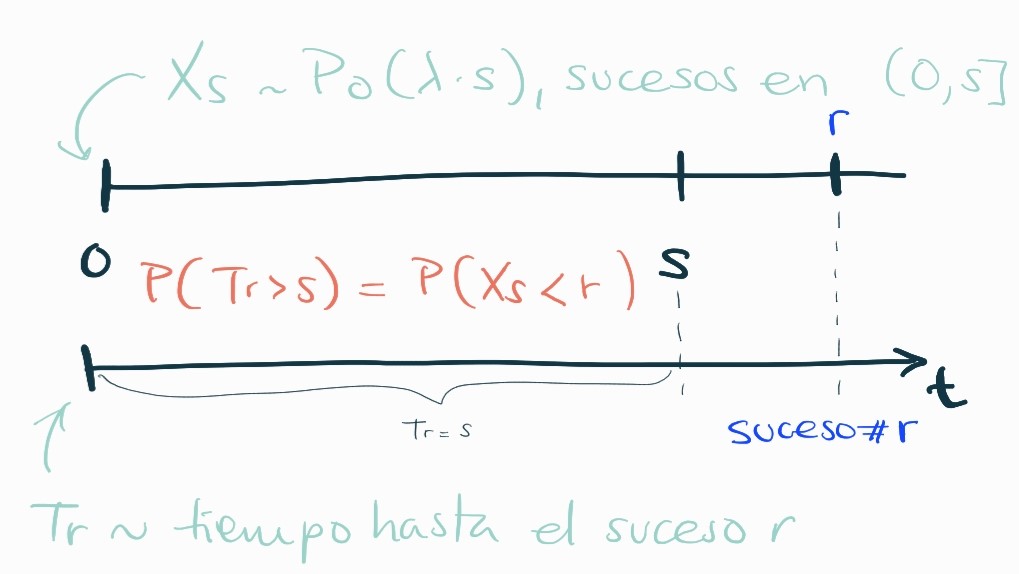 Xs ~ Po(λ·s), sucesos en (0,s]
r
0
P(Tr>s) = P(Xs<r)
s
t
Tr=s
suceso#r
Tr ~ tiempo hasta el suceso r